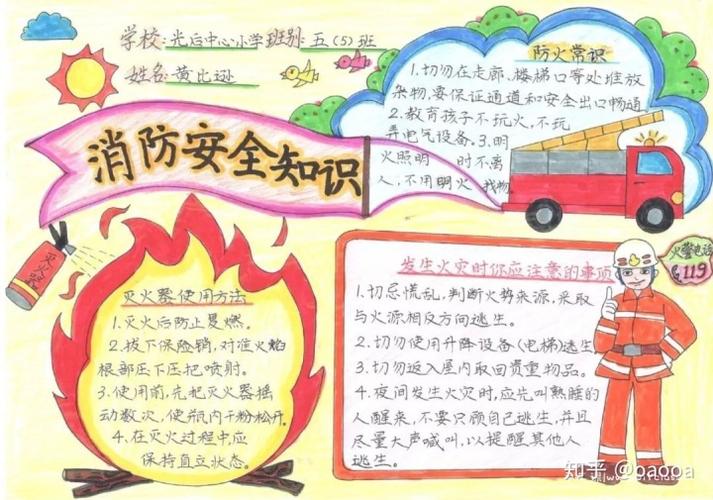 学校:光后中心小学班别:五(5)班
姓名:黄比逊
消防安全知识
防火常识
1.切勿在走廊、楼梯口等处堆放
杂物,要保证通道和安全出口畅通
2.教育孩子不玩火,不玩
弄电气设备。3.明
火照明 时不离
人,不用明火 找物
灭火器
灭火器使用方法
1.灭火后防止复燃。
2.拔下保险销,对准火焰
根部压下压把喷射。
3.使用前,先把灭火器摇
动数次,使瓶内干粉松开。
4.在灭火过程中应
保持直立状态。
发生火灾时你应注意的事项
1.切忌慌乱,判断火势来源,采取
与火源相反方向逃生。
2.切勿使用升降设备(电梯)逃生
3.切勿返入屋内取回贵重物品。
4.夜间发生火灾时,应先叫熟睡的
人醒来,不要只顾自己逃生,并且
尽量大声喊叫,以提醒其他人
逃生。
火警电话
119
知乎 @paopa